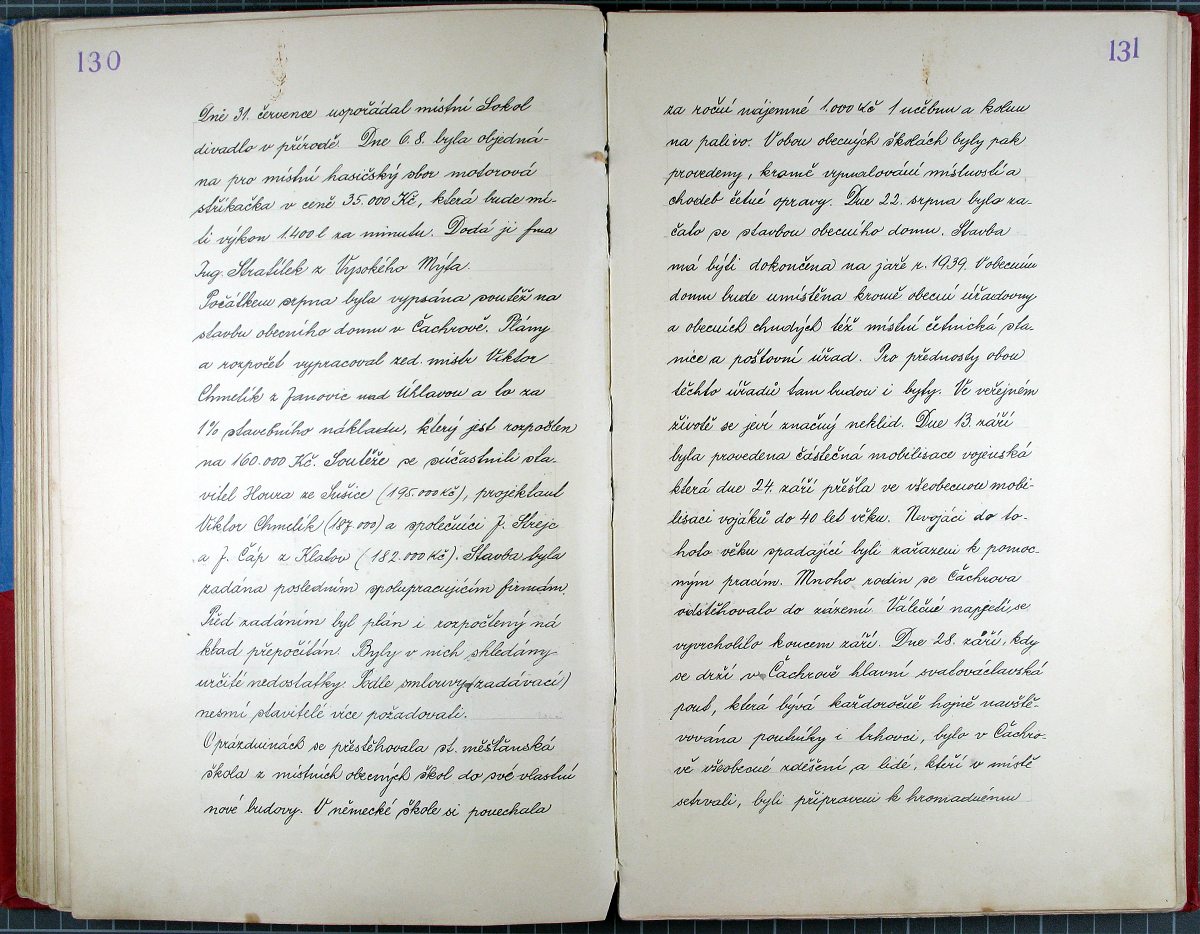 130
Dne 31. července uspořádal místní Sokol
divadlo v přírodě. Dne 6.8. byla objedná-
na pro místní hasičský sbor motorová
stříkačka v ceně 35.000 Kč, která bude mí-
ti výkon 1400 l za minutu. Dodá ji fma
Ing. Stratílek z Vysokého Mýta.
Počátkem srpna byla vypsána soutěž na
stavbu obecního domu v Čachrově. Plány
a rozpočet vypracoval zed. mistr Viktor
Chmelík z Janovic nad Úhlavou a to za
1% stavebního nákladu, který jest rozpočten
na 160.000 Kč. Soutěže se súčastnili sta-
vitel Houra ze Sušice (195.000 Kč), projektant
Viktor Chmelík (187.000) a společníci J. Strejc
a J. Čáp z Klatov (182.000 Kč). Stavba byla
zadána posledním spolupracujícím firmám.
Před zadáním byl plán i rozpočtený ná
klad přepočítán. Byly v nich shledány
určité nedostatky. Podle smlouvy (zadávací)
nesmí stavitelé více požadovati.
O prázdninách se přestěhovala st. měšťanská
škola z místních obecných škol do své vlastní
nové budovy. V německé škole si ponechala
131
za roční nájemné 1.000 Kč 1 učebnu a kolnu
na palivo. V obou obecných školách byly pak
provedeny, kromě vymalování místností a
chodeb četné opravy. Dne 22. srpna bylo za-
čato se stavbou obecního domu. Stavba
má býti dokončena na jaře r. 1939. V obecním
domu bude umístěna kromě obecní úřadovny
a obecních chudých též místní četnická sta-
nice a poštovní úřad. Pro přednosty obou
těchto úřadů tam budou i byty. Ve veřejném
životě se jeví značný neklid. Dne 13. září
byla provedena částečná mobilisace vojenská
která dne 24. září přešla ve všeobecnou mobi-
lisaci vojáků do 40 let věku. Nevojáci do to-
hoto věku spadající byli zařazeni k pomoc-
ným pracím. Mnoho rodin se Čachrova
odstěhovalo do zázemí. Válečné napjetí se
vyvrcholilo koncem září. Dne 28. září, kdy
se drží v Čachrově hlavní svatováclavská
pout, která bývá každoročně hojně navště-
vována poutníky i trhovci, bylo v Čachro-
vě všeobecné zděšení a lidé, kteří v místě
setrvali, byli připraveni k hromadnému